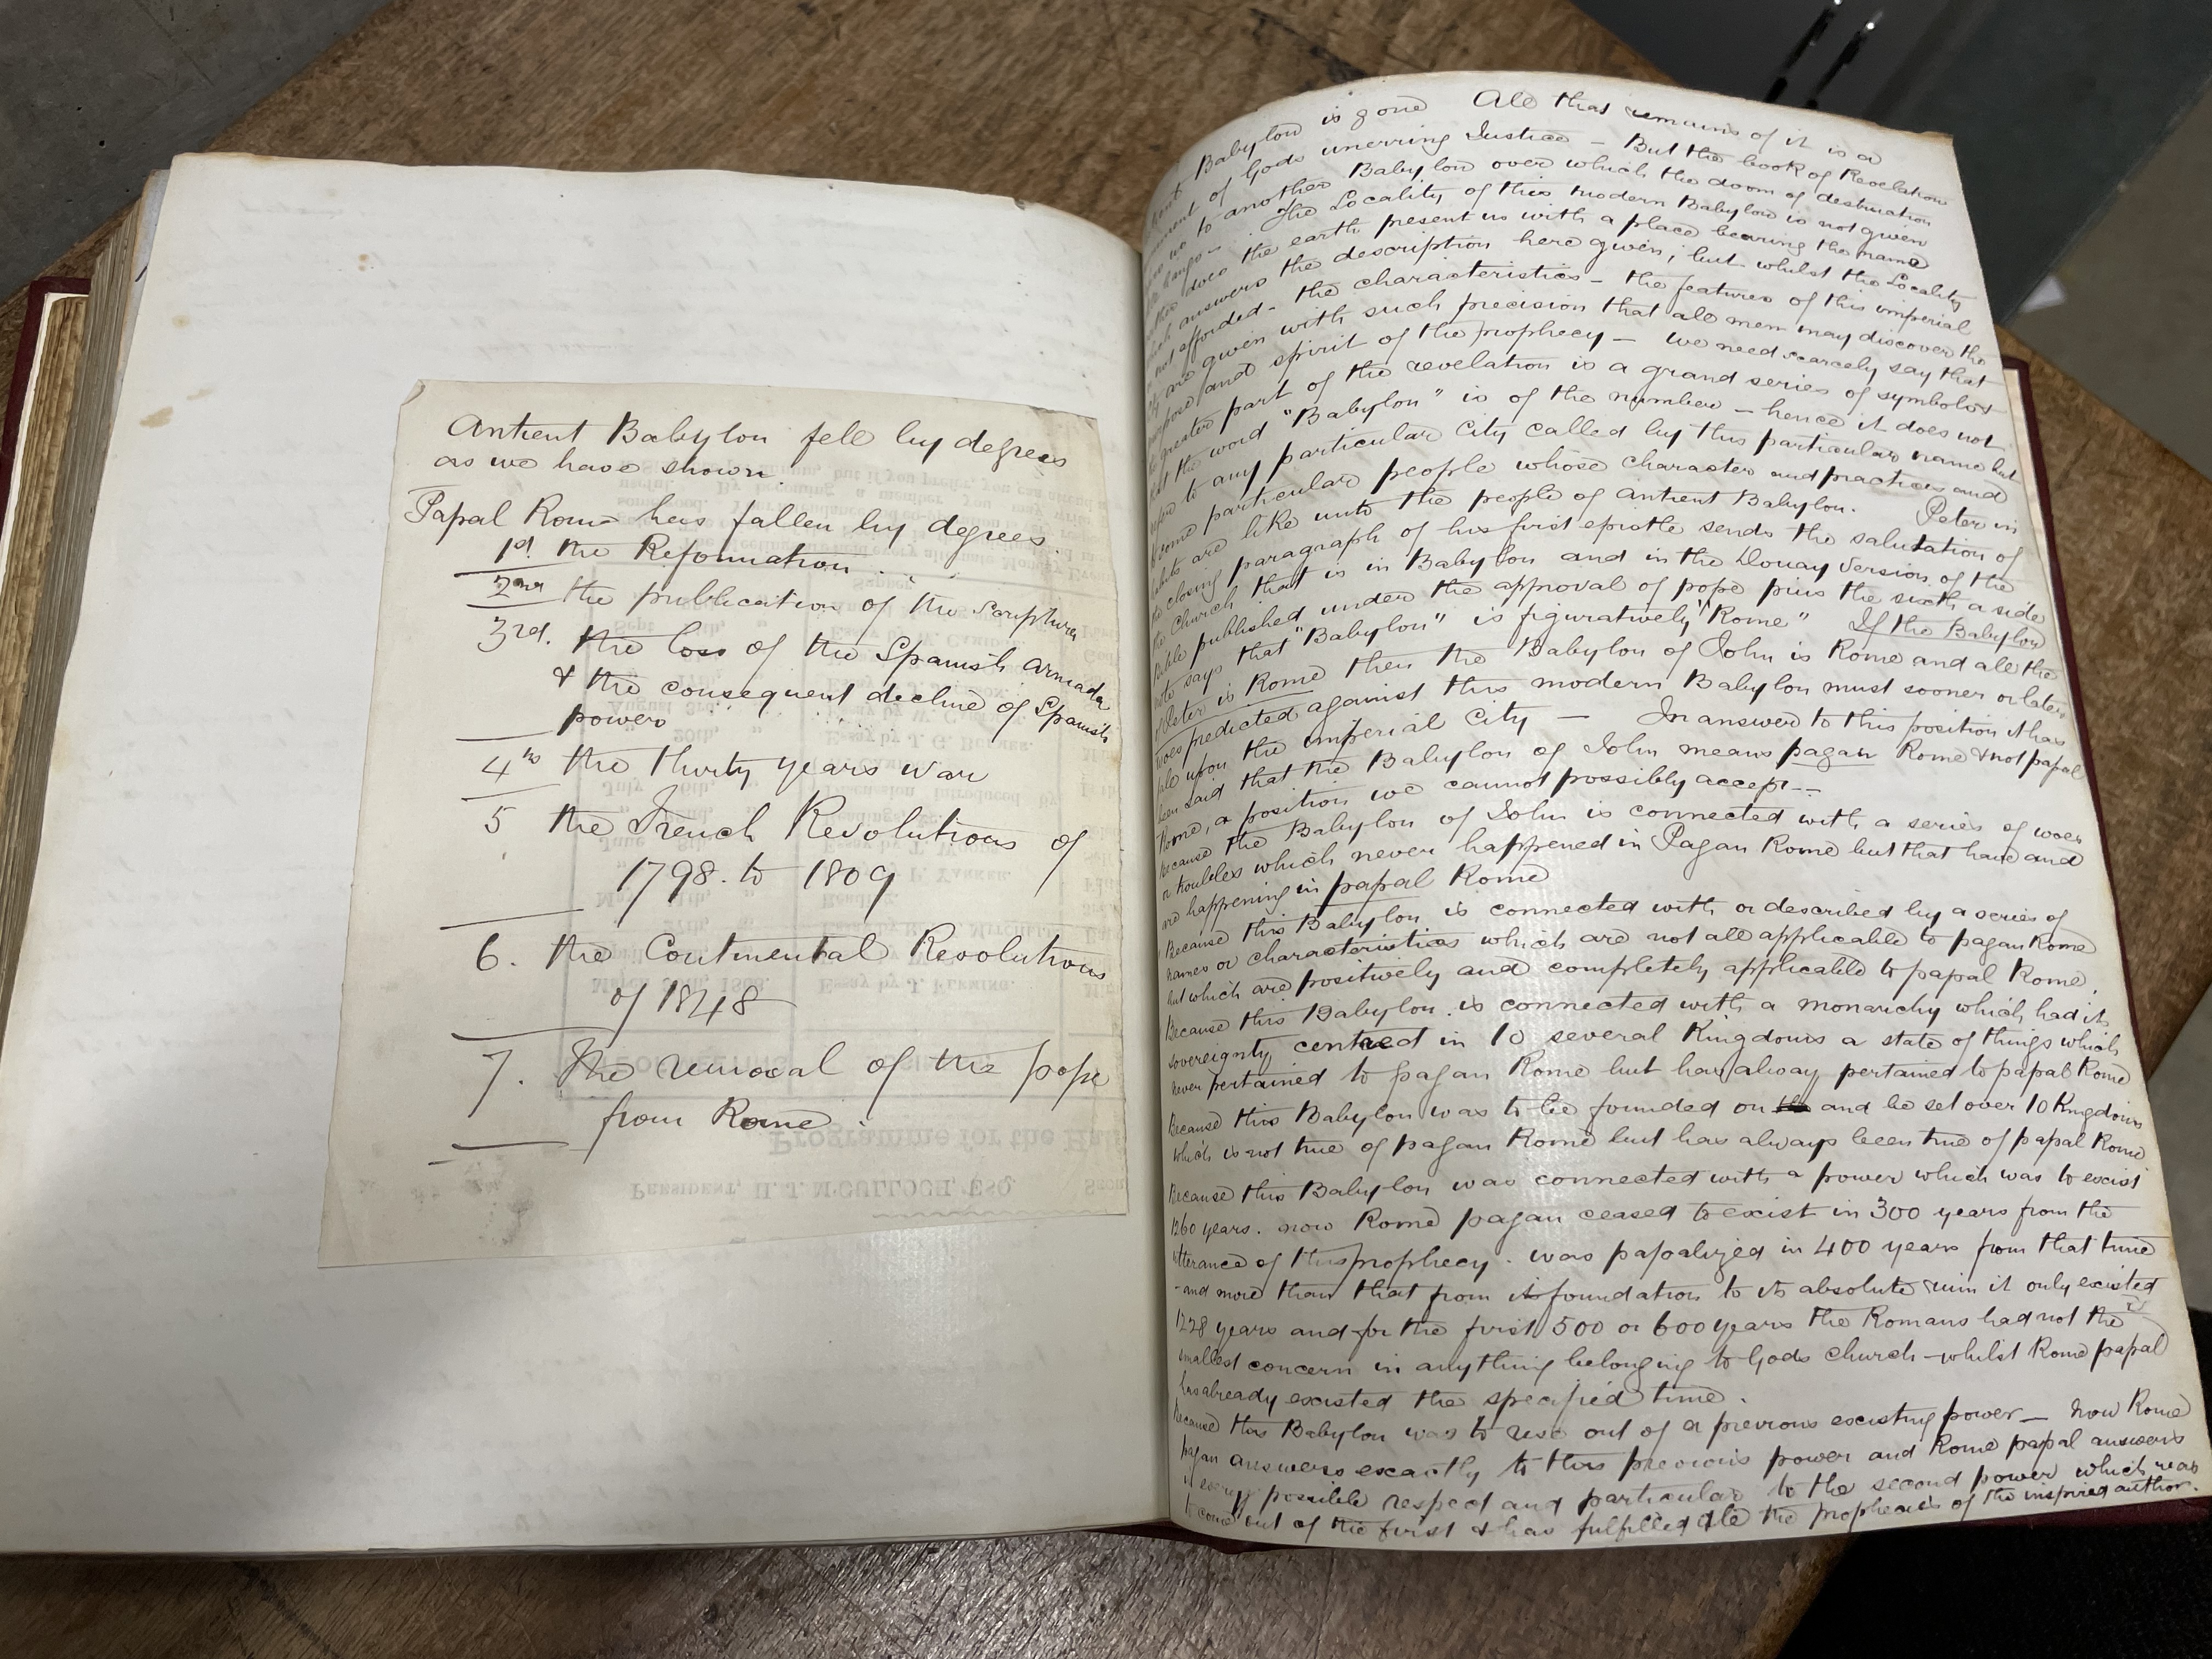 Antient Babylon fell by degrees
as we have shown.
Papal Rome has fallen by degrees.
1st. the Reformation
2nd the publication of the Scriptures
3rd. the loss of the Spanish armada
& the consequent decline of Spanish
power
4th the thirty years war
5 the French Revolutions of
1798. to 1809
6. the Continental Revolutions
of 1848
7. The removal of the pope
from Rome.
Programme for the
PRESIDENT, H. J. M'CULLOCH, ESQ.
Babylon is gone All that remains of it is a
of Gods unerring Justice - But the book of Revelation
to another Babylon over which the doom of destruction
The Locality of this modern Babylon is not given
does the earth present us with a place bearing the name
answers the description here given; but whilst the Locality
not afforded - the characteristics - the features of this imperial
are given with such precision that all men may discover the
and spirit of the prophecy - we need scarcely say that
greater part of the revelation is a grand series of symbols
the word "Babylon" is of the number - hence it does not
to any particular City called by this particular name but
some particular people whose character and practices and
habits are like unto the people of antient Babylon. Peter in
the closing paragraph of his first epistle sends the salutation of
the church that is in Babylon and in the Douay Version of the
Bible published under the approval of pope pius the sixth a side
note says that "Babylon" is figuratively "Rome" If the Babylon
of Peter is Rome then the Babylon of John is Rome and all the
woes predicted against this modern Babylon must sooner or later
fall upon the imperial City - In answer to this position it has
been said that the Babylon of John means pagan Rome & not papal
Rome, a position we cannot possibly accept --
Because the Babylon of John is connected with a series of woes
or troubles which never happened in Pagan Rome but that have and
are happening in papal Rome
Because this Babylon is connected with or described by a series of
names or characteristics which are not all applicable to pagan Rome
but which are positively and completely applicable to papal Rome.
Because this Babylon is connected with a monarchy which had its
sovereignty centred in 10 several Kingdoms a state of things which
never pertained to pagan Rome but has alway pertained to papal Rome
Because this Babylon was to be founded on and be set over 10 Kingdoms
which is not true of pagan Rome but has always been true of papal Rome
Because this Babylon was connected with a power which was to exist
1260 years. now Rome pagan ceased to exist in 300 years from the
utterance of this prophecy. was papalized in 400 years from that time
- and more than that from its foundation to its absolute ruin it only existed
1228 years and for the first 500 or 600 years the Romans had not the
smallest concern in anything belonging to Gods church - whilst Rome papal
has already existed the specified time.
Because this Babylon was to rise out of a previous existing power - now Rome
pagan answers exactly to this previous power and Rome papal answers
in every possible respect and particular to the second power which was
to come out of the first & has fulfilled all the prophecies of the inspired author.